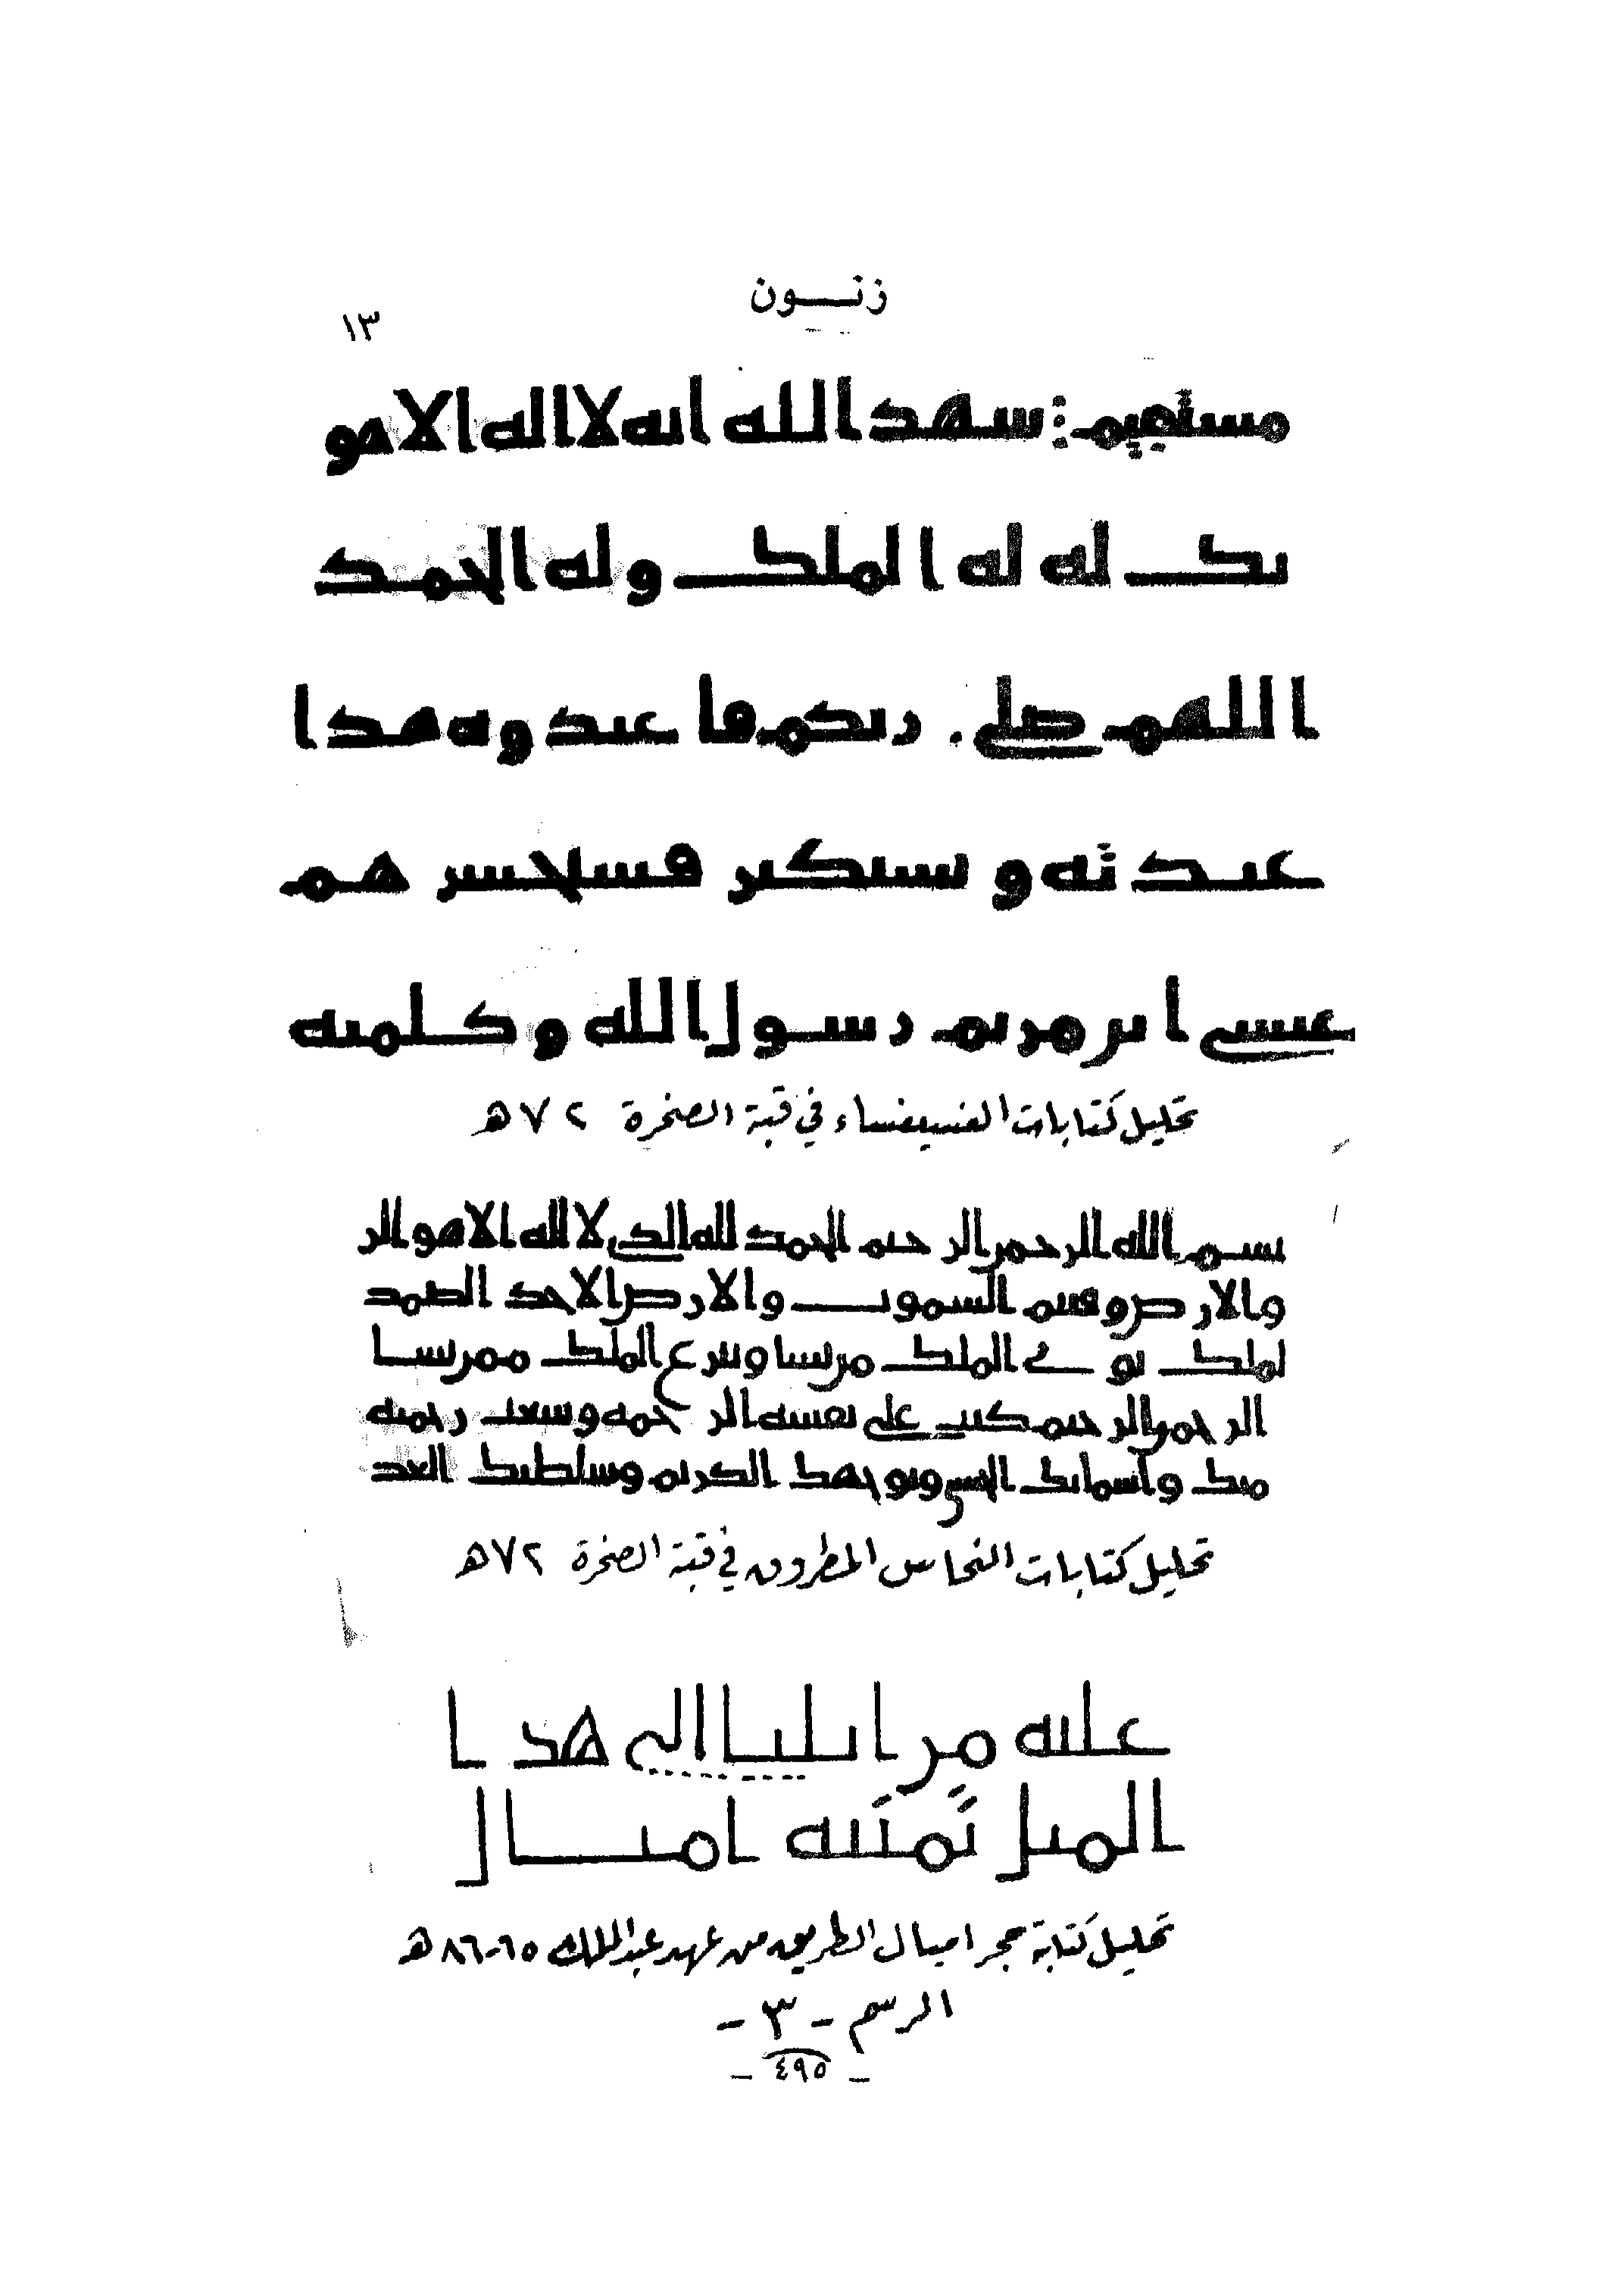 زنـــون
١٣
مستقيم : سهد الله انه لا اله الا هو
ىك له له الملك وله الحمد
اللهم صلى . ربكم فاعبدوه هدا
عبدته و ستكبر فسىحسر هم
عيسى ابن مريم رسول الله وكلمته
تحليل كتابات الفسيفساء في قبة الصخرة ٧٢ هـ
بسم الله الرحمن الرحيم الحمد لله الدى لا اله الا هو الر
والارض وقيم السموت والارض الاحد الصمد
لملك توى الملك من يسا وتنزع الملك ممن يسا
الرحمن الرحيم كتب على نفسه الرحمه وسعت رحمته
بك واسمائك الحسنى وبوجهك الكريم وسلطىك العد
تحليل كتابات النحاس المطروق في قبة الصخرة ٧٢ هـ
عليه من ايليا الى هدا
الميل ثمنيه اميال
تحليل كتابة حجر اميال الطريق من عهد عبد الملك ٦٥-٨٦ هـ
الرسم - ٣ -
- ٤٩٥ -